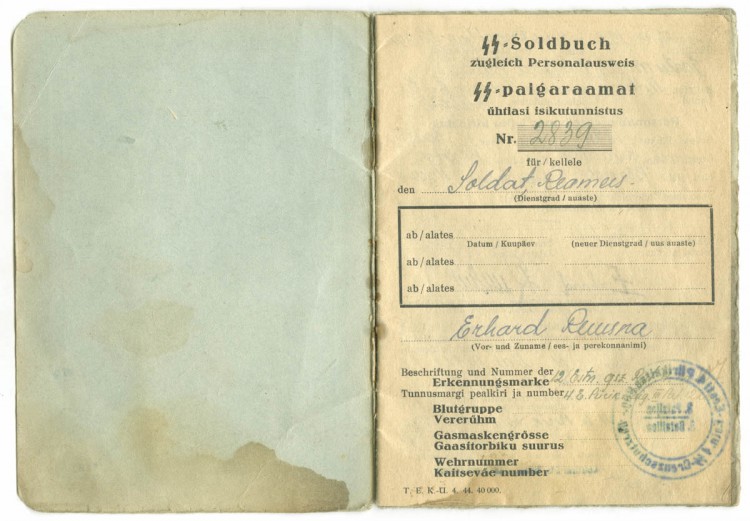 ᛋᛋ-Soldbuch
zugleich Personalausweis
ᛋᛋ-palgaraamat
ühtlasi isikutunnistus
Nr. 2839
für / kellele
den Soldat, Reamees.
(Dienstgrad / auaste)
ab / alates
Datum / Kuupäev (neuer Dienstgrad / uus auaste)
ab / alates
ab / alates
Erhard
(Vor- und Zuname / ees- ja perekonnanimi)
Beschriftung und Nummer der
Erkennungsmarke 12. Estn.
Tunnusmargi pealkiri ja number
Blutgruppe
Vererühm
Gasmaskengrösse
Gaasitorbiku suurus
Wehrnummer
Kaitseväe number
T. E. K.-Ü. 4. 44. 40 000.